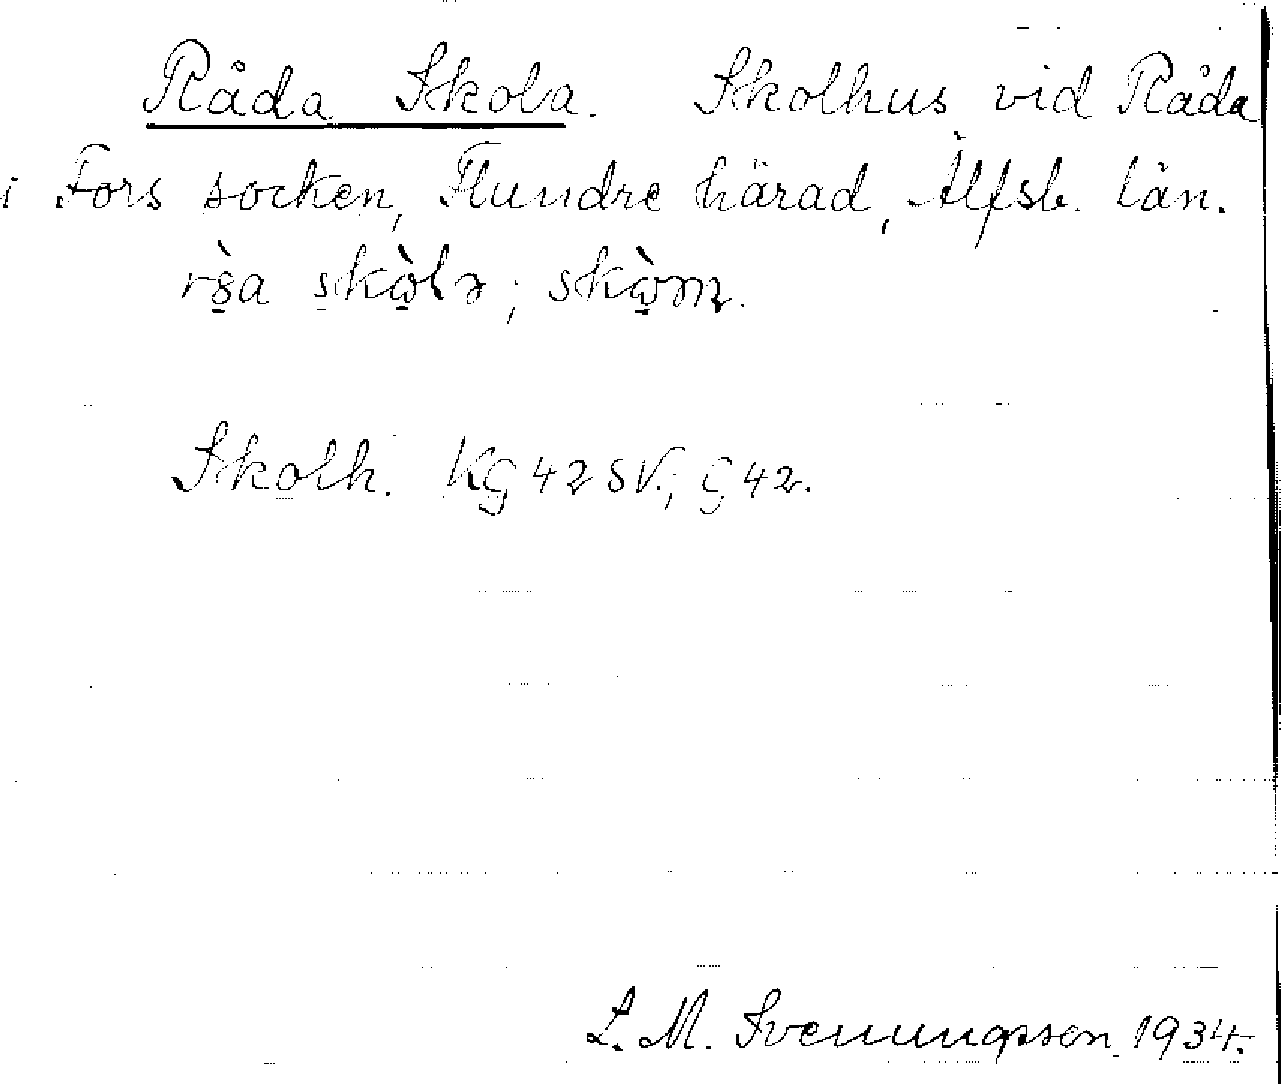 Råda Skola. Skolhus vid Råda
i Fors socken, Flundre härad, Älfsb. län.
Skolh. KG 42 SV.; G 42.
L. M. Svenungsson 1934.